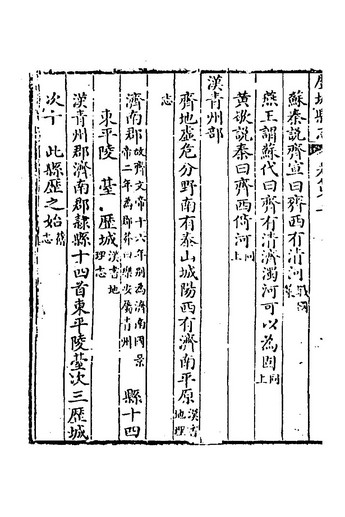 歷城縣志
蘇秦說齊宣曰齊西有清河戰國策
燕王謂蘇代曰齊有清濟濁河可以為固同上
黃歇說秦曰齊西倚河同上
漢青州部
齊地虛危分野南有泰山城陽西有濟南平原漢書地理
志
濟南郡故齊文帝十六年別為濟南國景帝二年為郡莽曰樂安屬青州 縣十四
東平陵 臺 歷城漢書地理志
漢青州郡濟南郡隸縣十四首東平陵臺次三歷城
次十 此縣歷之始舊志